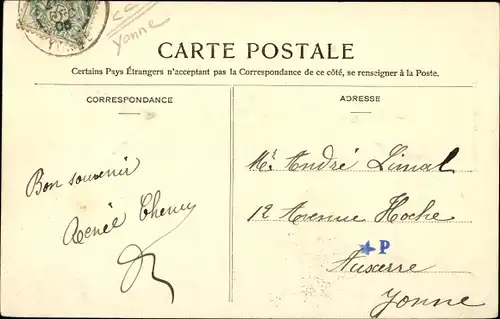 06
YONNE
CC
Yonne
CARTE POSTALE
Certains Pays Étrangers n'acceptant pas la Correspondance de ce côté, se renseigner à la Poste.
CORRESPONDANCE
Bon souvenir
René
ADRESSE
Mr. André Limal
12 Avenue Hoche
P
Auxerre
Yonne